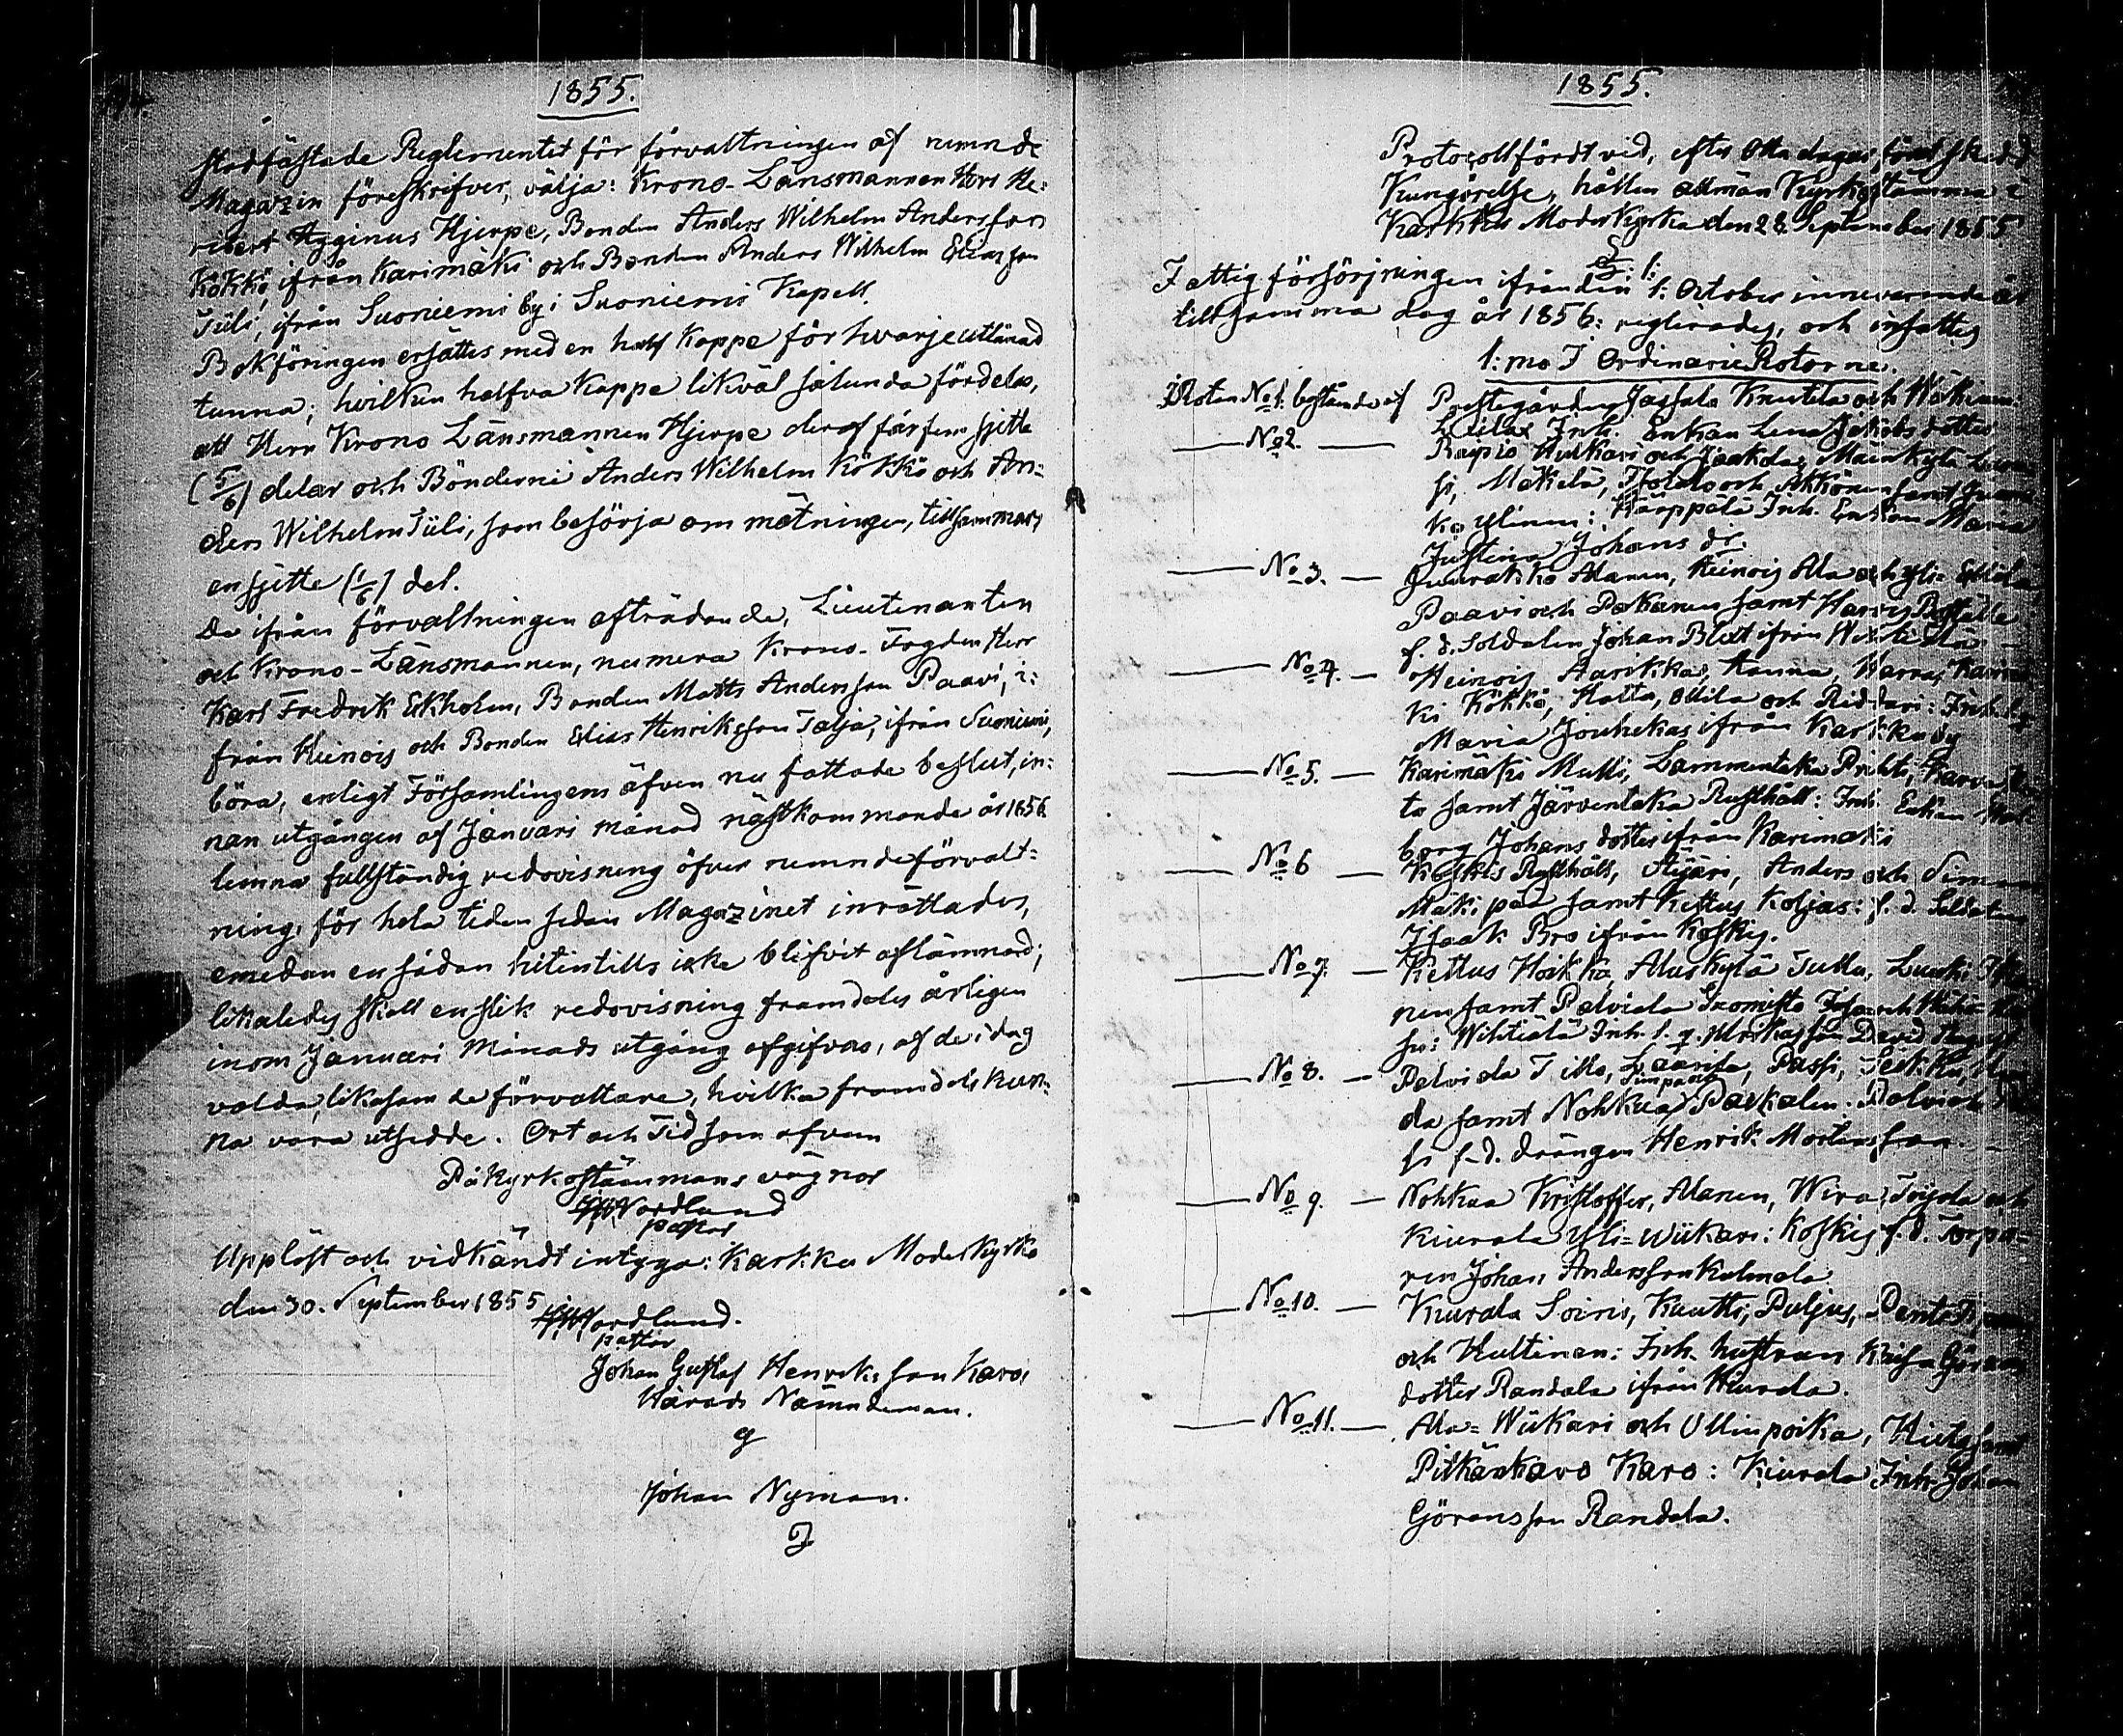 1855.
stadfästade Reglementet för förvaltningen af nemnde
Magazin föreskrifver, välja: Krono-Länsmannen Herr He-
ribert Hyginus Hjerpe, Bonden Anders Wilhelm Andersson
Kökkö, ifrån Karimäki och Bonden Anders Wilhelm Eliasson
Tüli, ifrån Suoniemi by i Suoniemi Kapell.
Bokföringen ersättes med en half Kappe för hvarje utlånad
tunna; hvilken halfva Kappe likväl sålunda fördelas,
att Herr Krono Länsmannen Hjerpe deraf får fem sjette
(5/6) delar och Bönderne Anders Wilhelm Kökkö och An-
ders Wilhelm Tüli, som besörja om mätningen, tillsammans
en sjette (1/6) del.
De ifrån förvaltningen afträdande, Lieutenanten
och Krono-Länsmannen, numera Krono-Fogden Herr
Karl Fredrik Ekholm, Bonden Matts Andersson Paavi, i-
från Heinois och Bonden Elias Henriksson Talja, ifrån Suoniemi,
böra, enligt Församlingens äfven nu fattade beslut, in-
nan utgången af Januari månad nästkommande år 1856
lemna fullständig redovisning öfver nemnde förvalt-
ning, för hela tiden sedan Magazinet inrättades,
emedan en sådan hitintills icke blifvit aflämnad;
likaledes skall en slik redovisning framdeles årligen
inom Januari Månads utgång afgifvas, af de i dag
valda, likasom de förvaltare, hvilka framdeles kun-
na vara utsedde. Ort och Tid som ofvan
På Kyrkostämmans vägnar
Nordlund
pastor
Uppläst och vidkändt intyga: Karkku Moderkyrka
den 30. September 1855
Nordlund.
pastor
Johan Gustaf Henriksson Karo,
Härads Nämndeman.
Johan Nyman.
1855.
Protocoll fördt vid, efter åtta dagar förut skedd
Kungörelse, hållen allmän Kyrkostämma i
Karkku Moderkyrka den 28 September 1855
§. 1:
Fattigförsörjningen ifrån den 1: October innevarande år
till samma dag år 1856: reglerades, och insattes
1:mo I Ordinarie Rotorne.
I Roten No 1. bestående af Prestegården Jassala Knuttila och
Inh. Enkan Lena Jakobs dotter
No 2. Raipio Hulkari och Jaakola,
Mäkelä, och Akkonen samt
Ylinen: Kärppälä Inh. Enkan Maria
Justina Johans dr.
No 3. Alanen, Heinois Ala och Yli-
Paavi och Pakanen samt
f. d. Soldaten Johan Blixt ifrån
No 4. Heinois Aarikka, Hanna,
Kökkö, Matta, Ollila och Riddari: Inh.
Maria Jouhikas ifrån Karkku by
No 5. Karimäki Mulli, Lammentaka Prihti,
ta samt Järventaka Rusthåll: Inh. Enkan
borg Johans dotter ifrån Karimäki
No 6 Koskis Rusthåll, Äijäri, Anders och
Mäkipää samt Kettus Koljas: f. d. Soldaten
Isaak Bro ifrån Koskis.
No 7. Kettus Hoikka, Aluskylä Tulla,
nen samt Palviala
Inh. David
No 8. Palviala Tillo, Laurila, Passi,
Simpala
da samt Nohkua Paskalin:
f. d. drängen Henrik Mårtensson.
No 9. Nohkua Kristoffer, Alanen, Wira, och
Kiurala Yli-Wükari: Koskis f. d. Torpa-
ren Johan Andersson Kulmala
No 10. Kiurala Soinis, Kuutti, Puljus,
och Hultinen: Inh. hustrun
dotter Randala ifrån Kiurala.
No 11. Ala-Wükari och Ollinpoika,
Pitkänkaro Karo: Kiurala Inh. Johan
Göransson Randala.